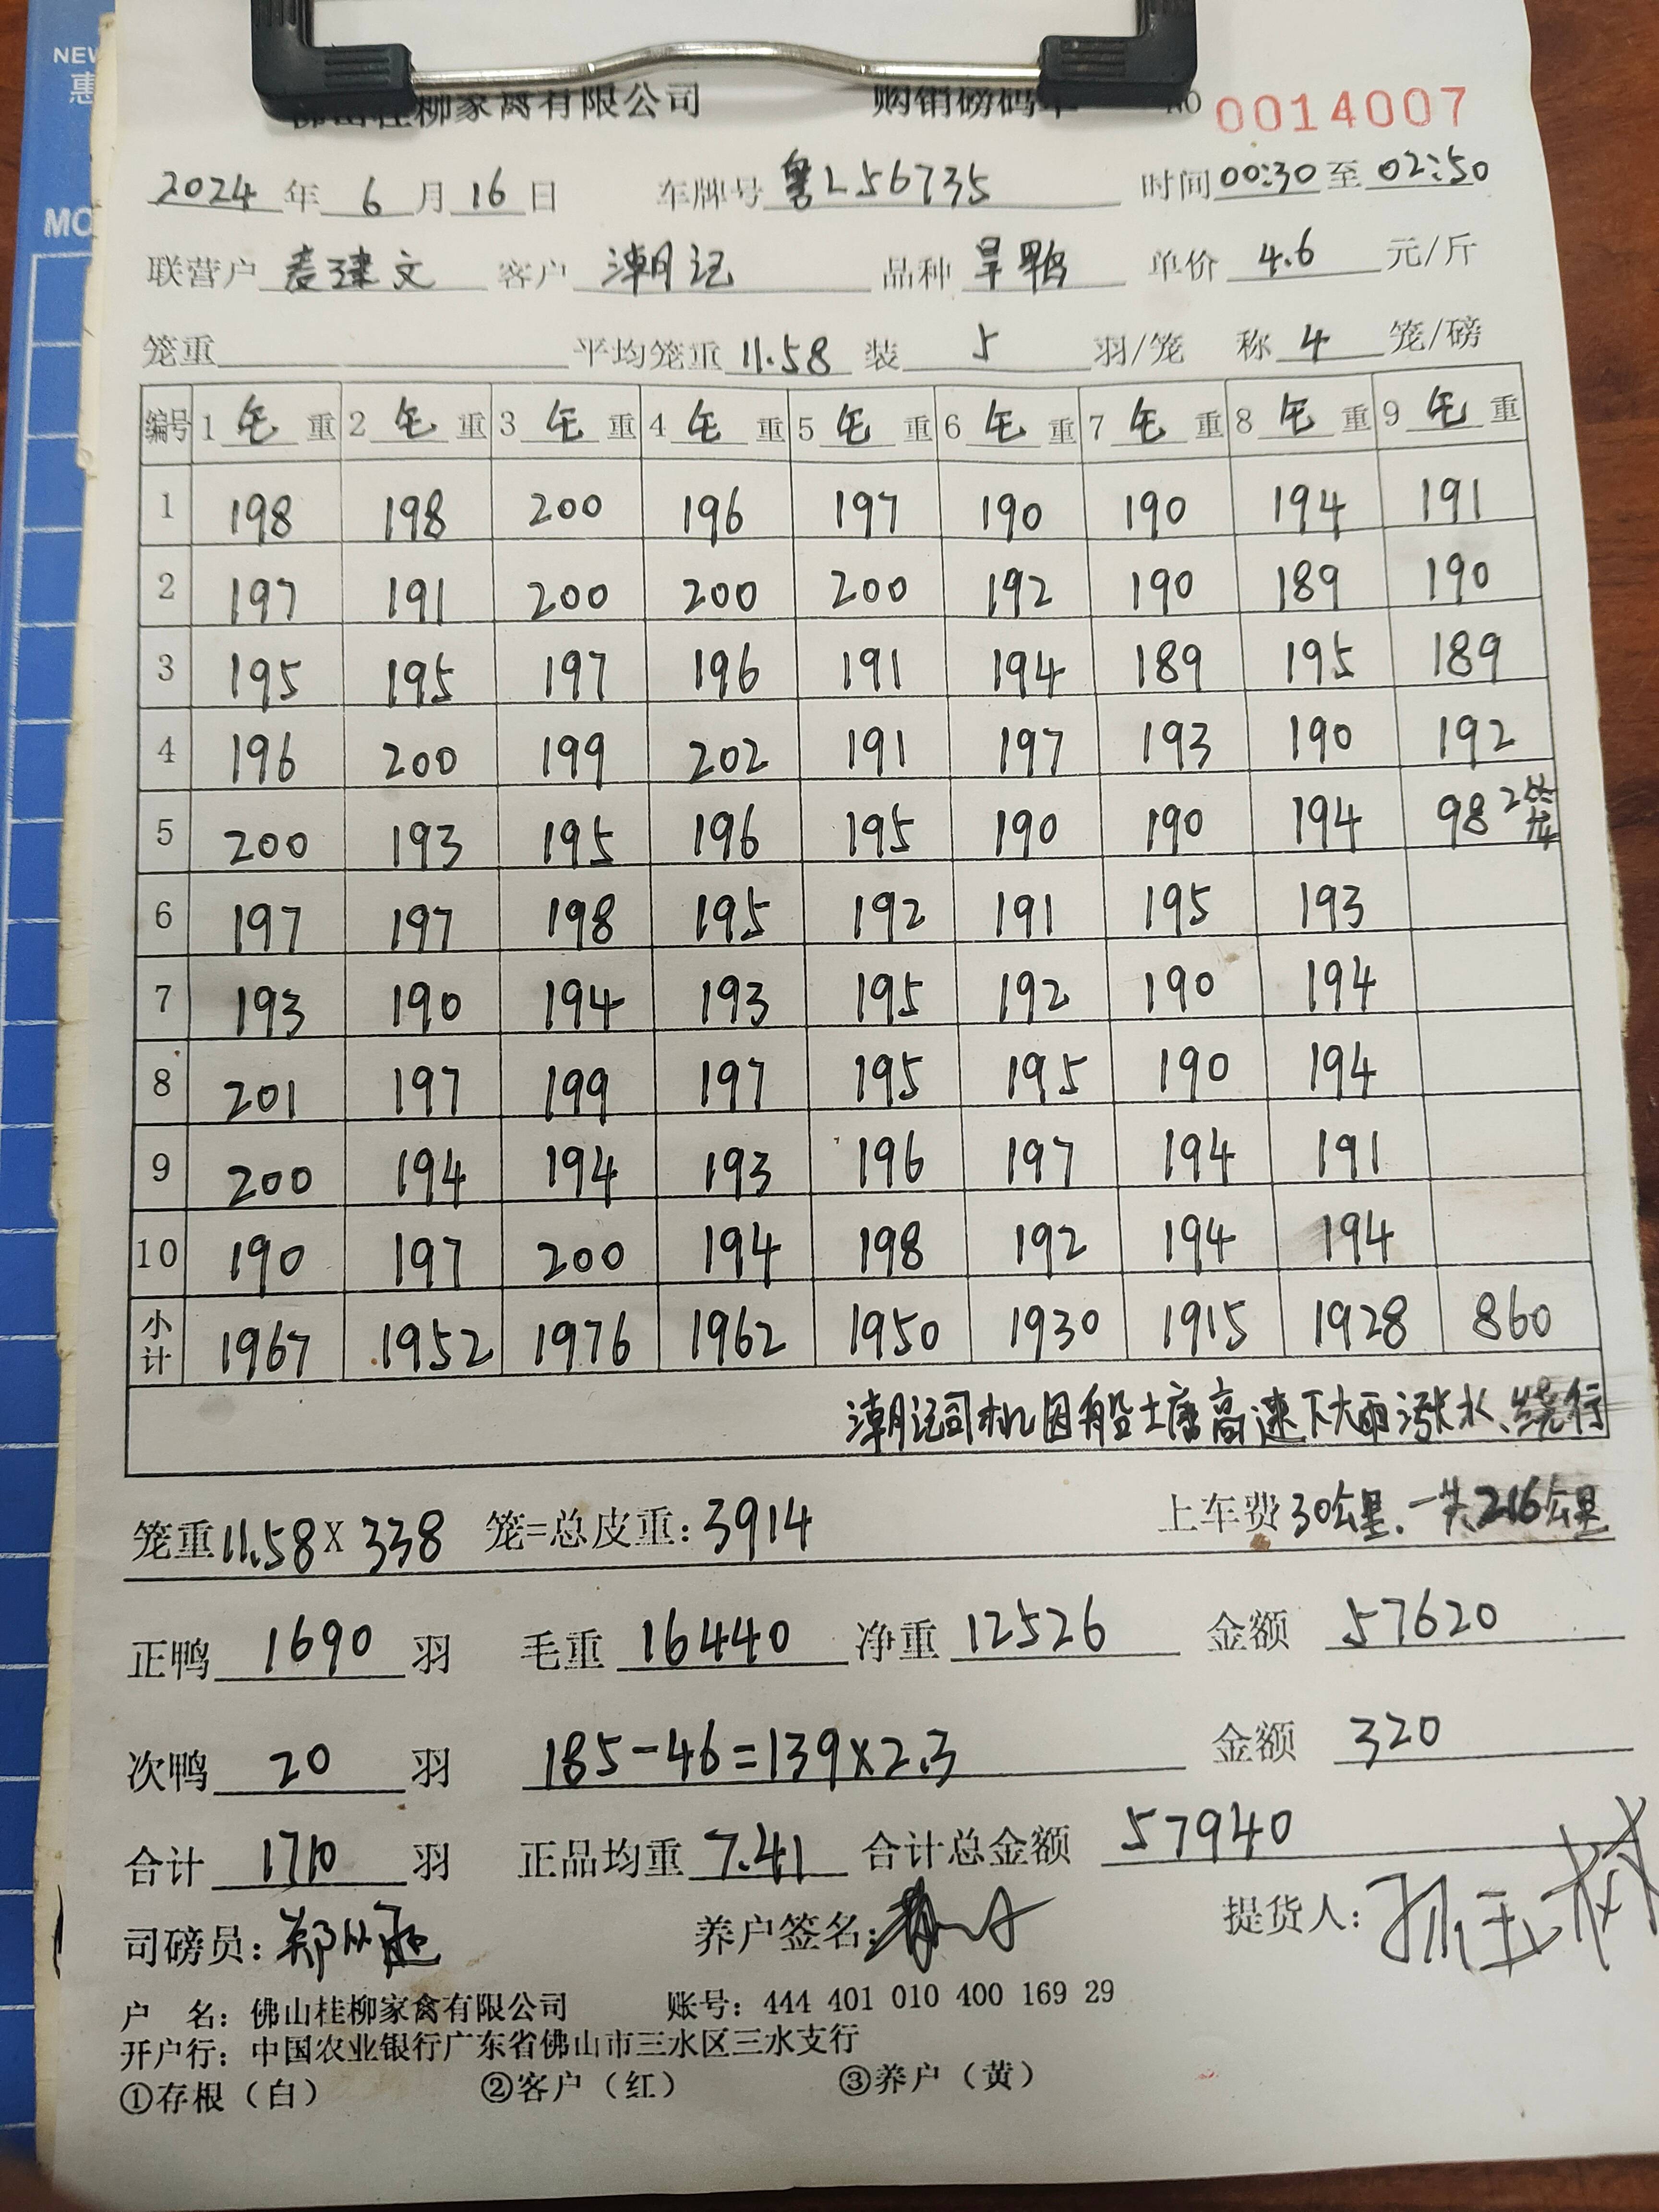 NEW
惠
MO
佛山桂柳家禽有限公司 购销磅码单 NO 0014007
2024 年 6 月 16 日 车牌号 粤L56735 时间 00:30 至 02:50
联营户 麦建文 客户 潮记 品种 旱鸭 单价 4.6 元/斤
笼重 平均笼重 11.58 装 5 羽/笼 称 4 笼/磅
编号 1 毛 重 2 毛 重 3 毛 重 4 毛 重 5 毛 重 6 毛 重 7 毛 重 8 毛 重 9 毛 重
1 198 198 200 196 197 190 190 194 191
2 197 191 200 200 200 192 190 189 190
3 195 195 197 196 191 194 189 195 189
4 196 200 199 202 191 197 193 190 192
5 200 193 195 196 195 190 190 194 98 2笼
6 197 197 198 195 192 191 195 193
7 193 190 194 193 195 192 190 194
8 201 197 199 197 195 195 190 194
9 200 194 194 193 196 197 194 191
10 190 197 200 194 198 192 194 194
小计 1967 1952 1976 1962 1950 1930 1915 1928 860
潮记司机因船土唐高速下大雨涨水、绕行
笼重 11.58 X 338 笼=总皮重: 3914 上车费 30公里.一共216公里
正鸭 1690 羽 毛重 16440 净重 12526 金额 57620
次鸭 20 羽 185-46=139×2.3 金额 320
合计 1710 羽 正品均重 7.41 合计总金额 57940
司磅员: 养户签名: 提货人:
户 名: 佛山桂柳家禽有限公司 账号: 444 401 010 400 169 29
开户行: 中国农业银行广东省佛山市三水区三水支行
①存根（白） ②客户（红） ③养户（黄）